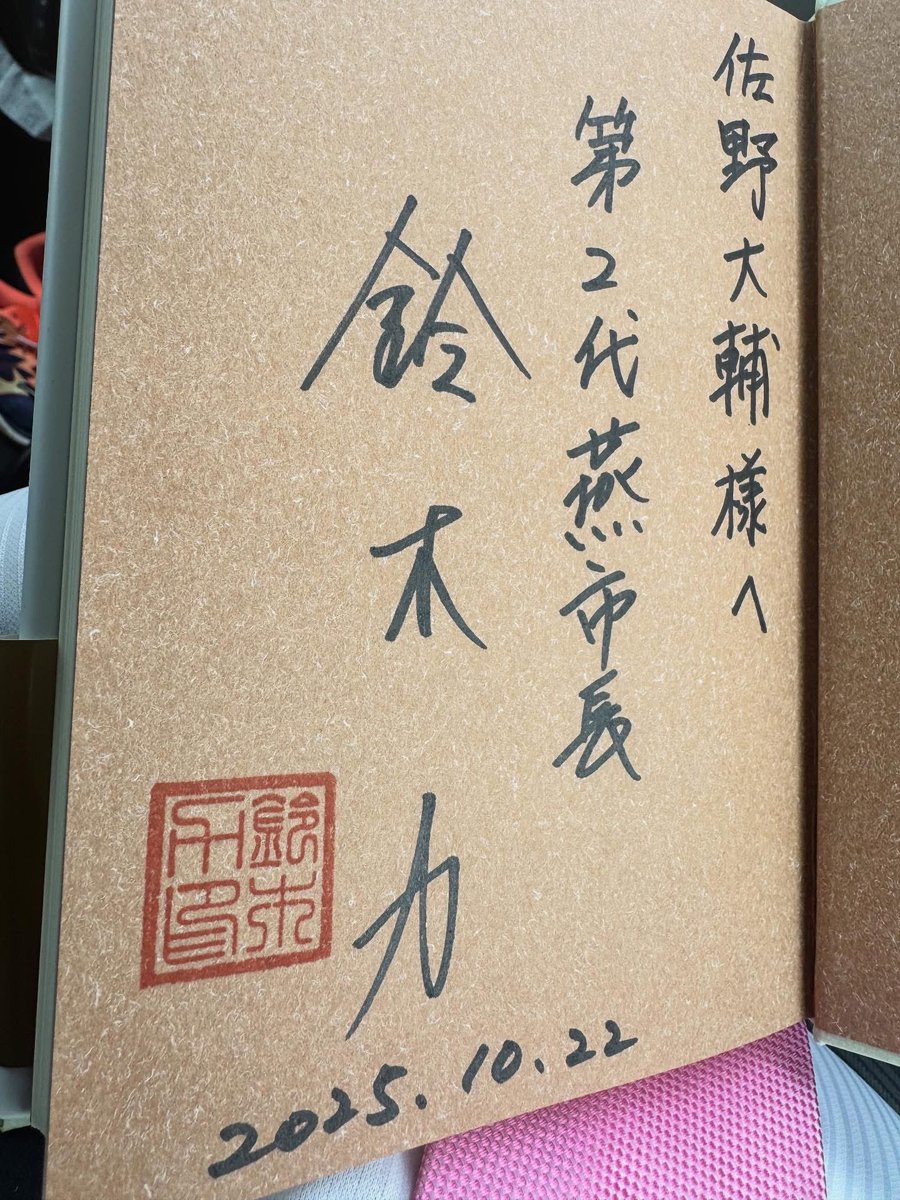 佐野大輔様へ
第2代燕市長
鈴木力
鈴木
力印
2025.10.22